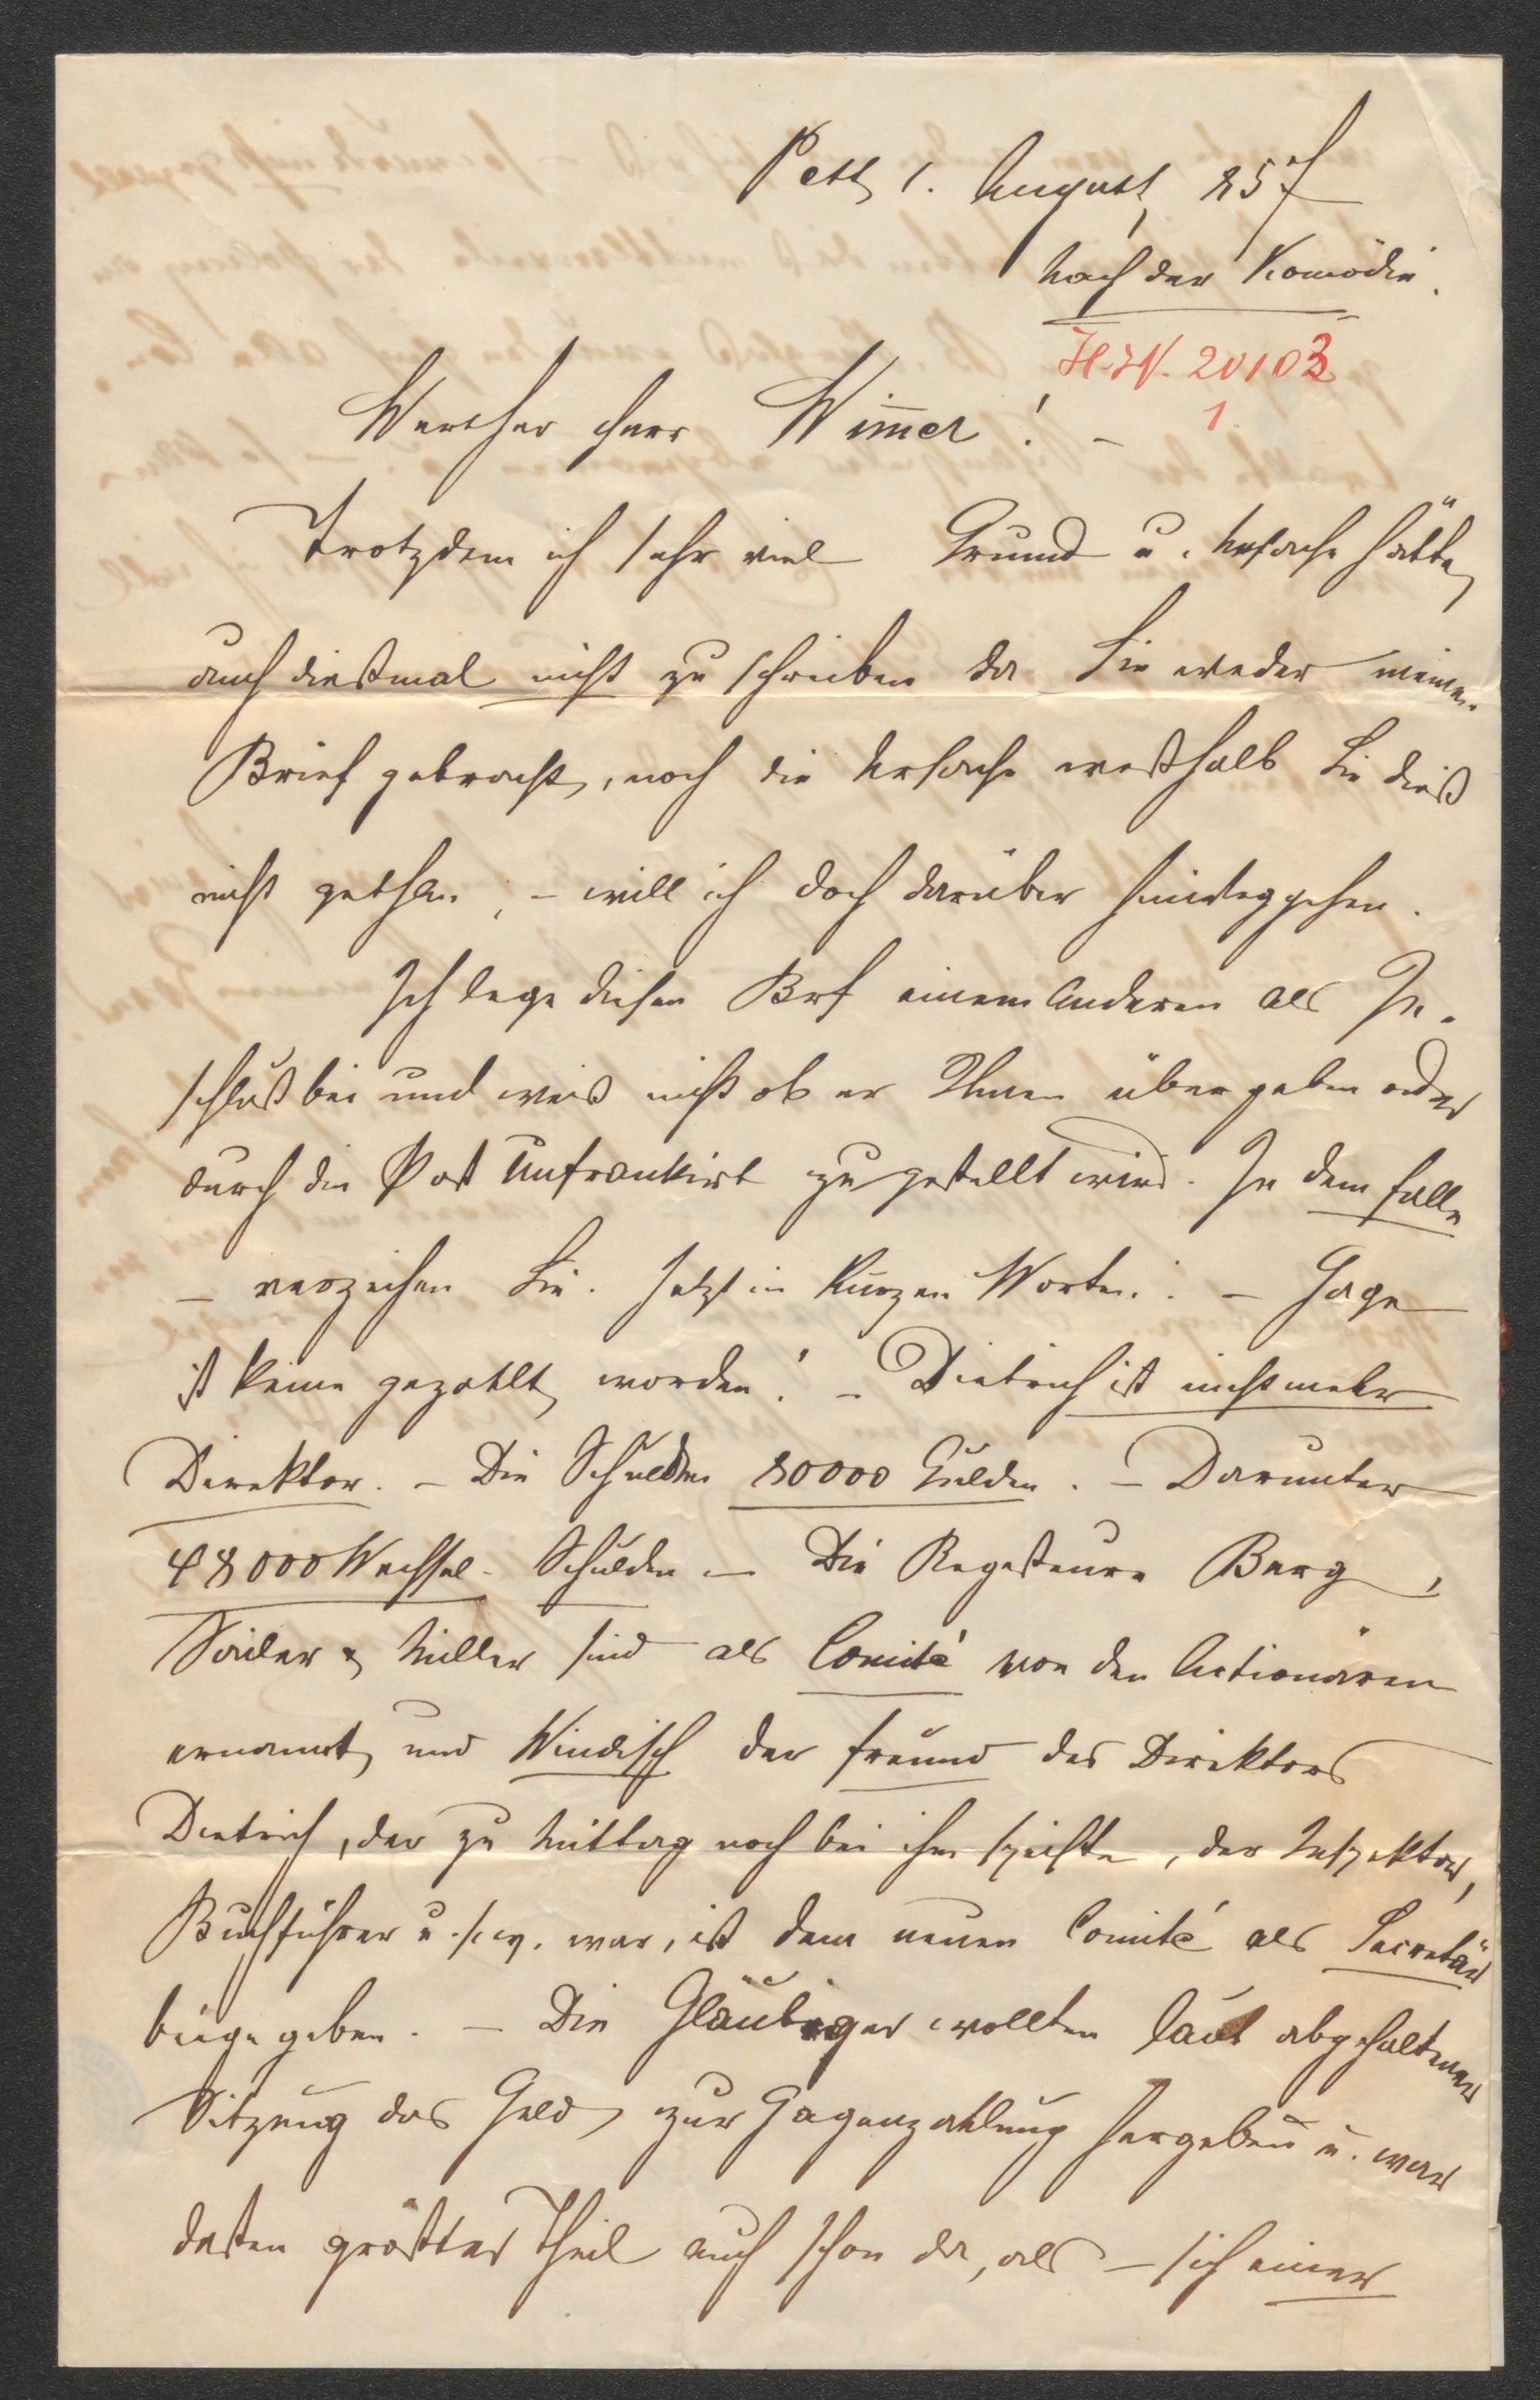 Pest, 1. August 857
Nach der Komödie.
H.I.N. 20103
1.
Werther Herr Wim̄er! –
Trotzdem ich sehr viel Grund u. Ursache hätte,
auch dießmal nicht zu schreiben da Sie weder meinen
Brief gebracht, noch die Ursache weßhalb Sie dieß
nicht gethan, – will ich doch darüber hinweggehen.
Ich lege diesen Brf einem Anderen als In-
schluß bei und weis nicht ob er Ihnen übergeben oder
durch die Post unfrankirt zugestellt wird. In dem Falle
– verzeihen Sie. Jetzt in kurzen Worten: – Gage
ist keine gezahlt worden! – Dietrich ist nicht mehr
Direktor. – Die Schulden 80000 Gulden. – Darunter
48000 Wechsel-Schulden – Die Regisseure Berg,
Sailer & Müller sind als Comité von den Actionären
ernannt, und Windisch der Freund des Direktors
Dietrich, der zu Mittag noch bei ihm speiste, der Inspektor,
Buchführer u.s.w. war, ist dem neuen Comité als Secretär
beigegeben. – Die Gläubiger wollten laut abgehaltener
Sitzung das Geld zur Gagenzahlung hergeben u. war
dessen größter Theil auch schon da, als – sich einer